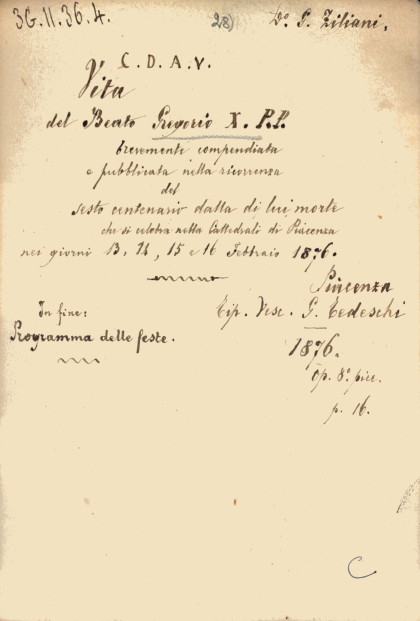 3G.II.36.4.
28)
Do. G. Ziliani.
C. D. A. V.
Vita
del Beato Gregorio X. P.P.
brevemente compendiata
e pubblicata nella ricorrenza
del
sesto centenario dalla di lui morte
che si celebra nella Cattedrale di Piacenza
nei giorni 13, 14, 15 e 16 Febbraio 1876.
Piacenza
Tip. Vesc. G. Tedeschi
1876.
Op. 8° picc.
p. 16.
In fine:
Programma delle feste.
C